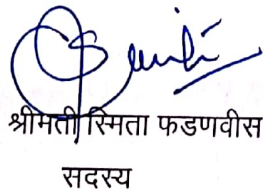 श्रीमती स्मिता फडणवीस
सदस्य